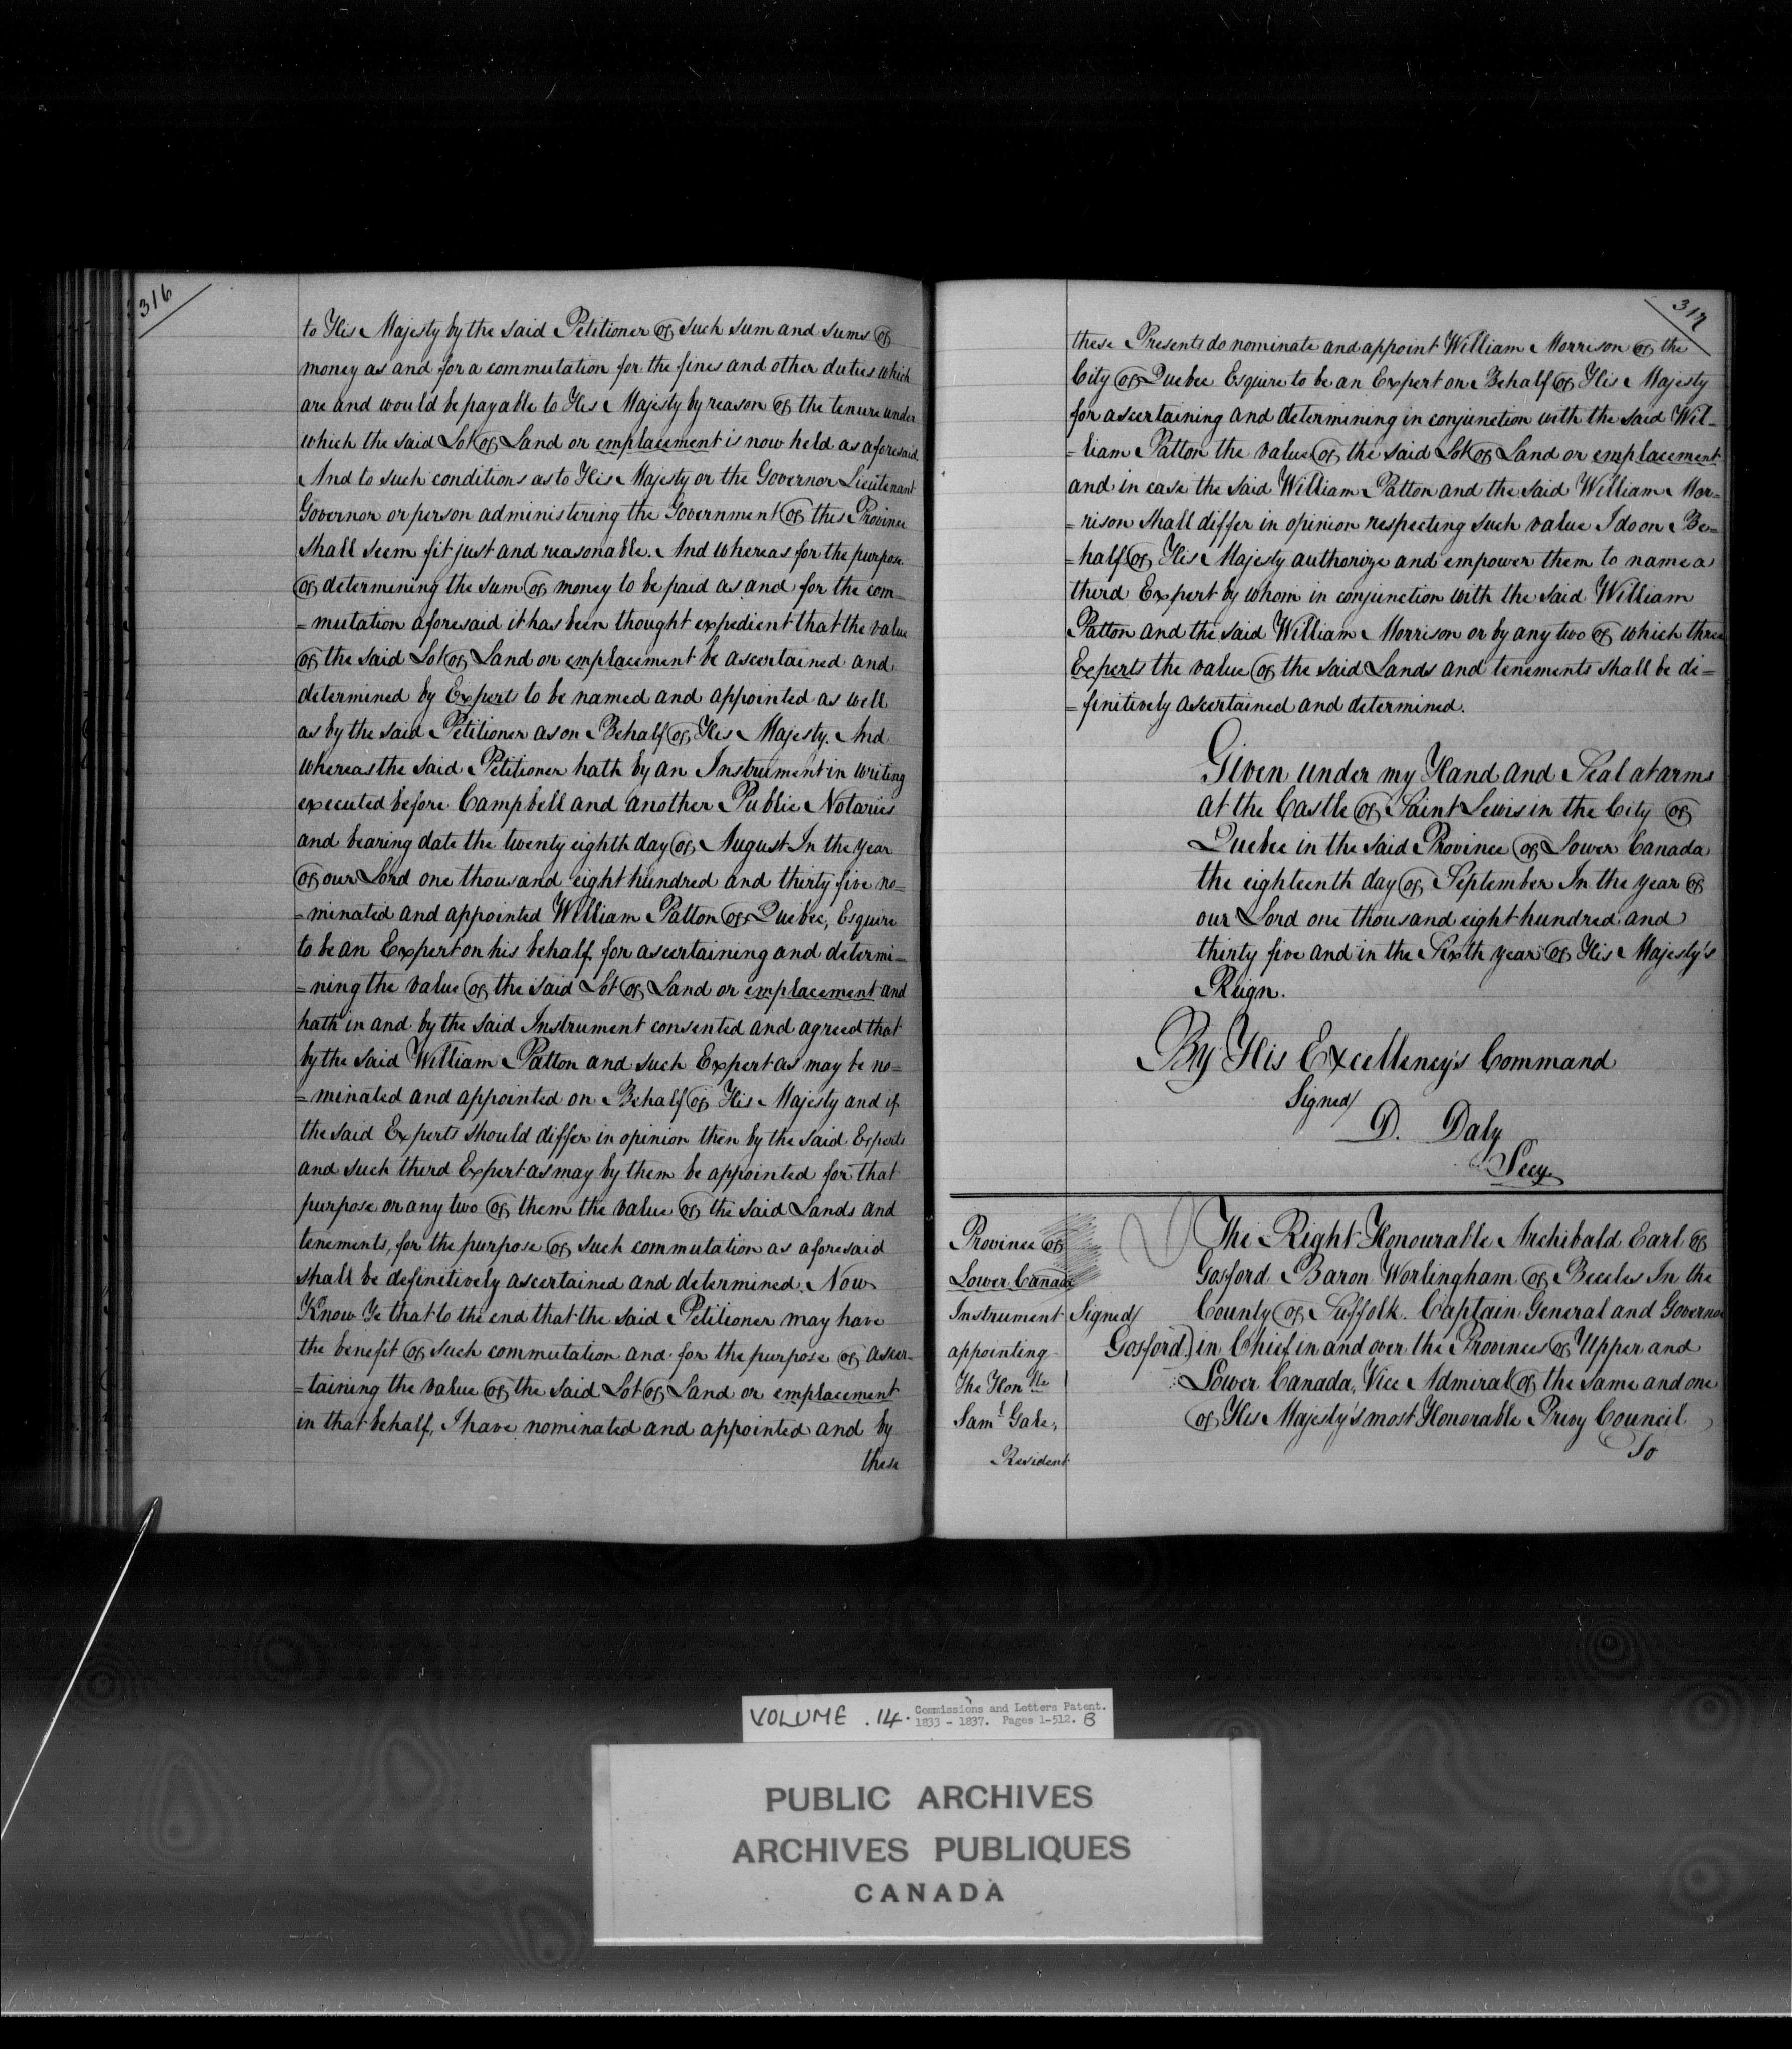 316
to His Majesty by the said Petitioner of such sum and sums of
money as and for a commutation for the fines and other duties which
are and would be payable to His Majesty by reason of the tenure under
which the said Lot of Land or emplacement is now held as aforesaid.
And to such conditions as to His Majesty or the Governor Lieutenant
Governor or person administering the Government of this Province
shall seem fit just and reasonable. And whereas for the purpose
of determining the sum of money to be paid as and for the com=
=mutation aforesaid it has been thought expedient that the value
of the said Lot of Land or emplacement be ascertained and
determined by Experts to be named and appointed as well
as by the said Petitioner as on Behalf of His Majesty. And
whereas the said Petitioner hath by an Instrument in writing
executed before Campbell and another Public Notaries
and bearing date the twenty eighth day of August In the year
of our Lord one thousand eight hundred and thirty five no=
=minated and appointed William Patton of Quebec, Esquire
to be an Expert on his behalf for ascertaining and determi=
=ning the value of the said Lot of Land or emplacement and
hath in and by the said Instrument consented and agreed that
by the said William Patton and such Expert as may be no=
=minated and appointed on Behalf of His Majesty and if
the said Experts should differ in opinion then by the said Experts
and such third Expert as may by them be appointed for that
purpose or any two of them the value of the said Lands and
tenements, for the purpose of such commutation as aforesaid
shall be definitively ascertained and determined. Now
Know Ye that to the end that the said Petitioner may have
the benefit of such commutation and for the purpose of ascer=
=taining the value of the said Lot of Land or emplacement
in that behalf, I have nominated and appointed and by
these
317
these Presents do nominate and appoint William Morrison of the
City of Quebec Esquire to be an Expert on Behalf of His Majesty
for ascertaining and determining in conjunction with the said Wil=
=liam Patton the value of the said Lot of Land or emplacement
and in case the said William Patton and the said William Mor=
=rison shall differ in opinion respecting such value I do on Be=
=half of His Majesty authorize and empower them to name a
third Expert by whom in conjunction with the said William
Patton and the said William Morrison or by any two of which three
Experts the value of the said Lands and tenements shall be de=
=finitively ascertained and determined.
Given under my Hand and Seal at arms
at the Castle of Saint Lewis in the City of
Quebec in the said Province of Lower Canada
the eighteenth day of September In the year of
our Lord one thousand eight hundred and
thirty five and in the Sixth year of His Majesty's
Reign.
By His Excellency's Command
Signed/
D. Daly
Secy
Province of
Lower Canada
Instrument
appointing
The Honble
Saml Gale,
Resident
Signed/
Gosford)
The Right Honourable Archibald Earl of
Gosford Baron Worlingham of Beccles In the
County of Suffolk. Captain General and Governor
in Chief in and over the Provinces of Upper and
Lower Canada, Vice Admiral of the same and one
of His Majesty's most Honorable Privy Council
To
VOLUME .14. Commissions and Letters Patent.
1833 - 1837. Pages 1-512. B
PUBLIC ARCHIVES
ARCHIVES PUBLIQUES
CANADA